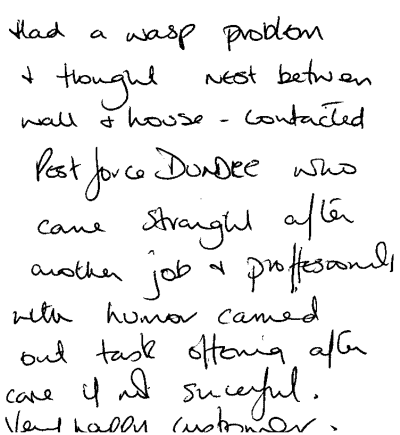 Had a wasp problem
& thought nest between
wall & house - contacted
Pestforce DUNDEE who
came straight after
another job & proffesionally
with humor carried
out task offering after
care if not succesful.
Very happy customer.